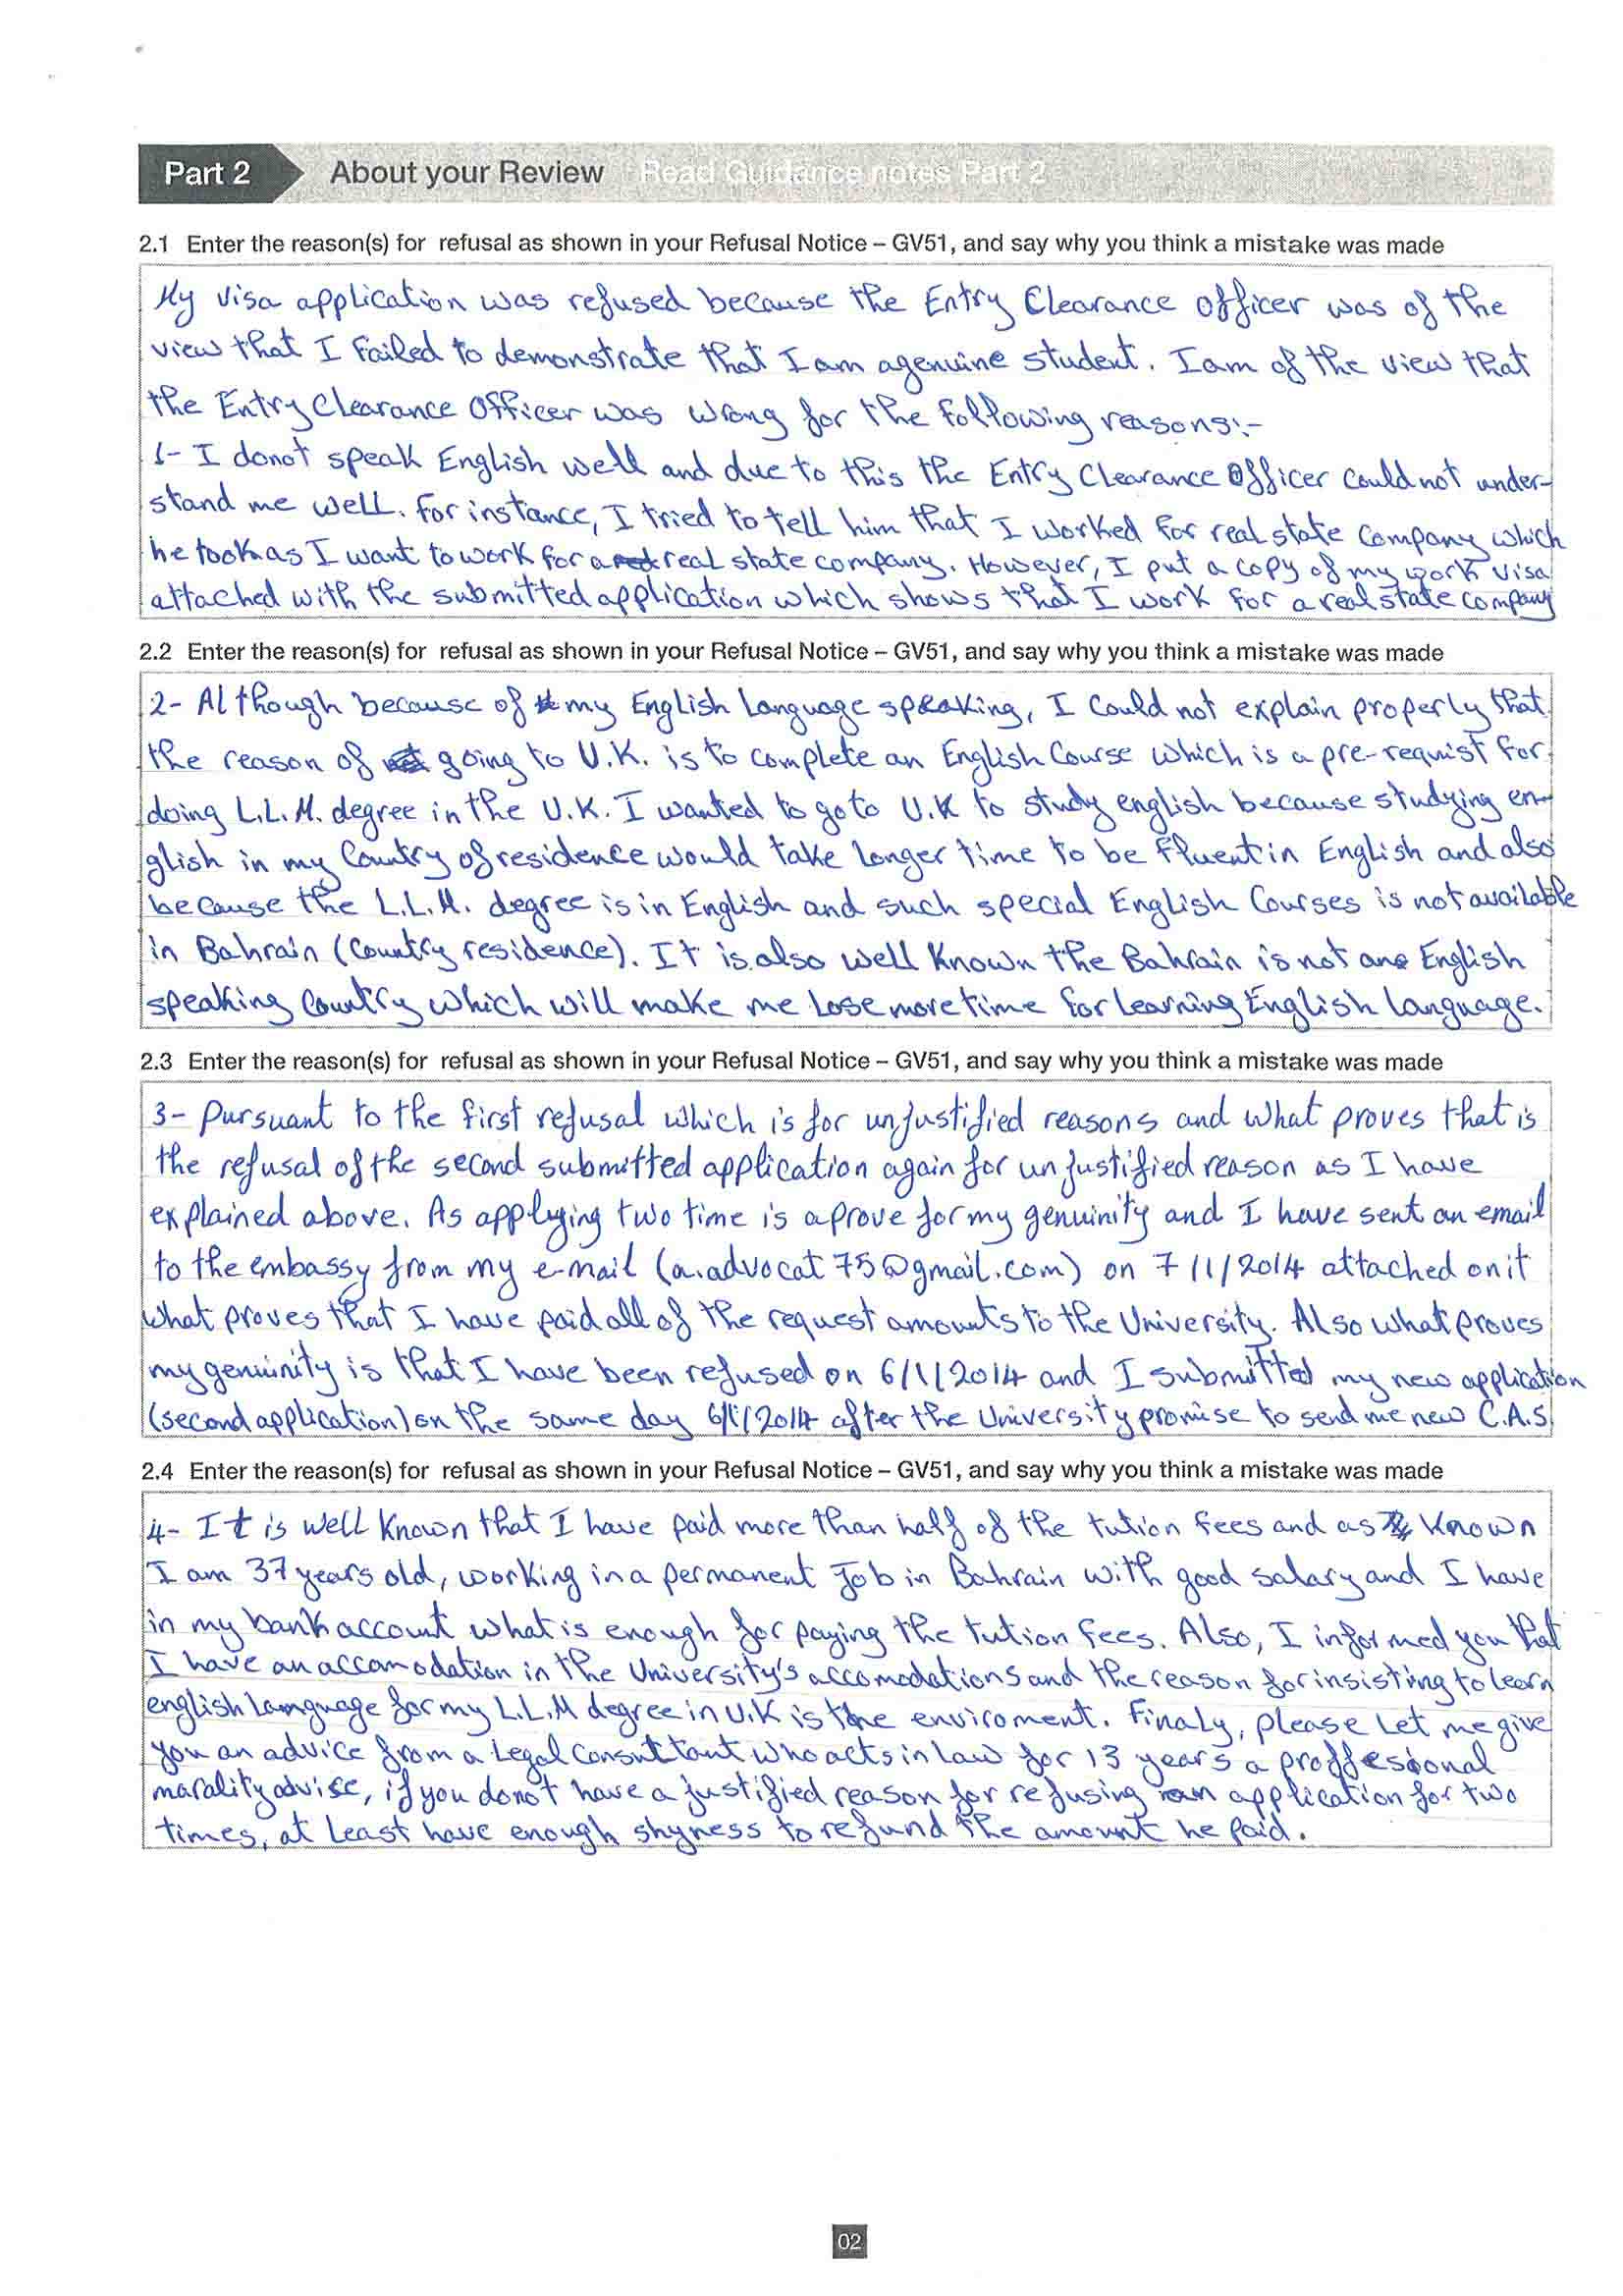 Part 2 About your Review Read Guidance notes Part 2
2.1 Enter the reason(s) for refusal as shown in your Refusal Notice – GV51, and say why you think a mistake was made
My visa application was refused because the Entry Clearance Officer was of the
view that I Failed to demonstrate that I am agenuine student. I am of the view that
the Entry Clearance Officer was wrong for the following reasons:-
1- I donot speak English well and due to this the Entry Clearance Officer could not under-
stand me well. For instance, I tried to tell him that I worked for real state company which
he took as I want to work for a real state company. However, I put a copy of my work visa
attached with the submitted application which shows that I work for a real state company
2.2 Enter the reason(s) for refusal as shown in your Refusal Notice – GV51, and say why you think a mistake was made
2- Although because of my English Language speaking, I could not explain properly that
the reason of going to U.K. is to complete an English Course which is a pre-requist for
doing L.L.M. degree in the U.K. I wanted to go to U.K to study english because studying en-
glish in my Country of residence would take longer time to be fluent in English and also
because the L.L.M. degree is in English and such special English Courses is not available
in Bahrain (Country residence). It is also well known the Bahrain is not an English
speaking Country which will make me lose more time for learning English language.
2.3 Enter the reason(s) for refusal as shown in your Refusal Notice – GV51, and say why you think a mistake was made
3- Pursuant to the first refusal which is for unjustified reasons and what proves that is
the refusal of the second submitted application again for unjustified reason as I have
explained above. As applying two time is aprove for my genuinity and I have sent an email
to the embassy from my e-mail (a.advocat75@gmail.com) on 7/1/2014 attached on it
what proves that I have paid all of the request amounts to the University. Also what proves
my genuinity is that I have been refused on 6/1/2014 and I submitted my new application
(second application) on the same day 6/1/2014 after the University promise to send me new C.A.S
2.4 Enter the reason(s) for refusal as shown in your Refusal Notice – GV51, and say why you think a mistake was made
4- It is well known that I have paid more than half of the tution fees and as known
I am 37 years old, working in a permanent Job in Bahrain with good salary and I have
in my bank account what is enough for paying the tution fees. Also, I informed you that
I have an accamodation in the University's accomodations and the reason for insisting to learn
english language for my L.L.M degree in U.K is the enviroment. Finaly, please let me give
you an advice from a Legal Consultant who acts in law for 13 years a proffesional
marality advise, if you donot have a justified reason for refusing an application for two
times, at least have enough shyness to refund the amount he paid.
02